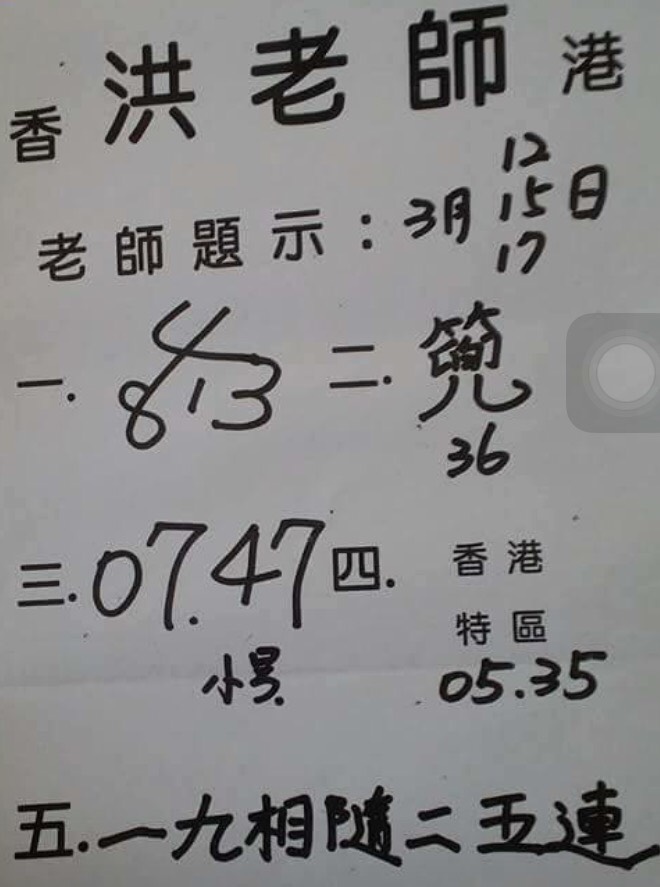 香 洪老師 港
12
老師題示：3月 15 日
17
一. 813 二.
36
三. 07.47 四. 香港
特區
小号. 05.35
五. 一九相隨二五連